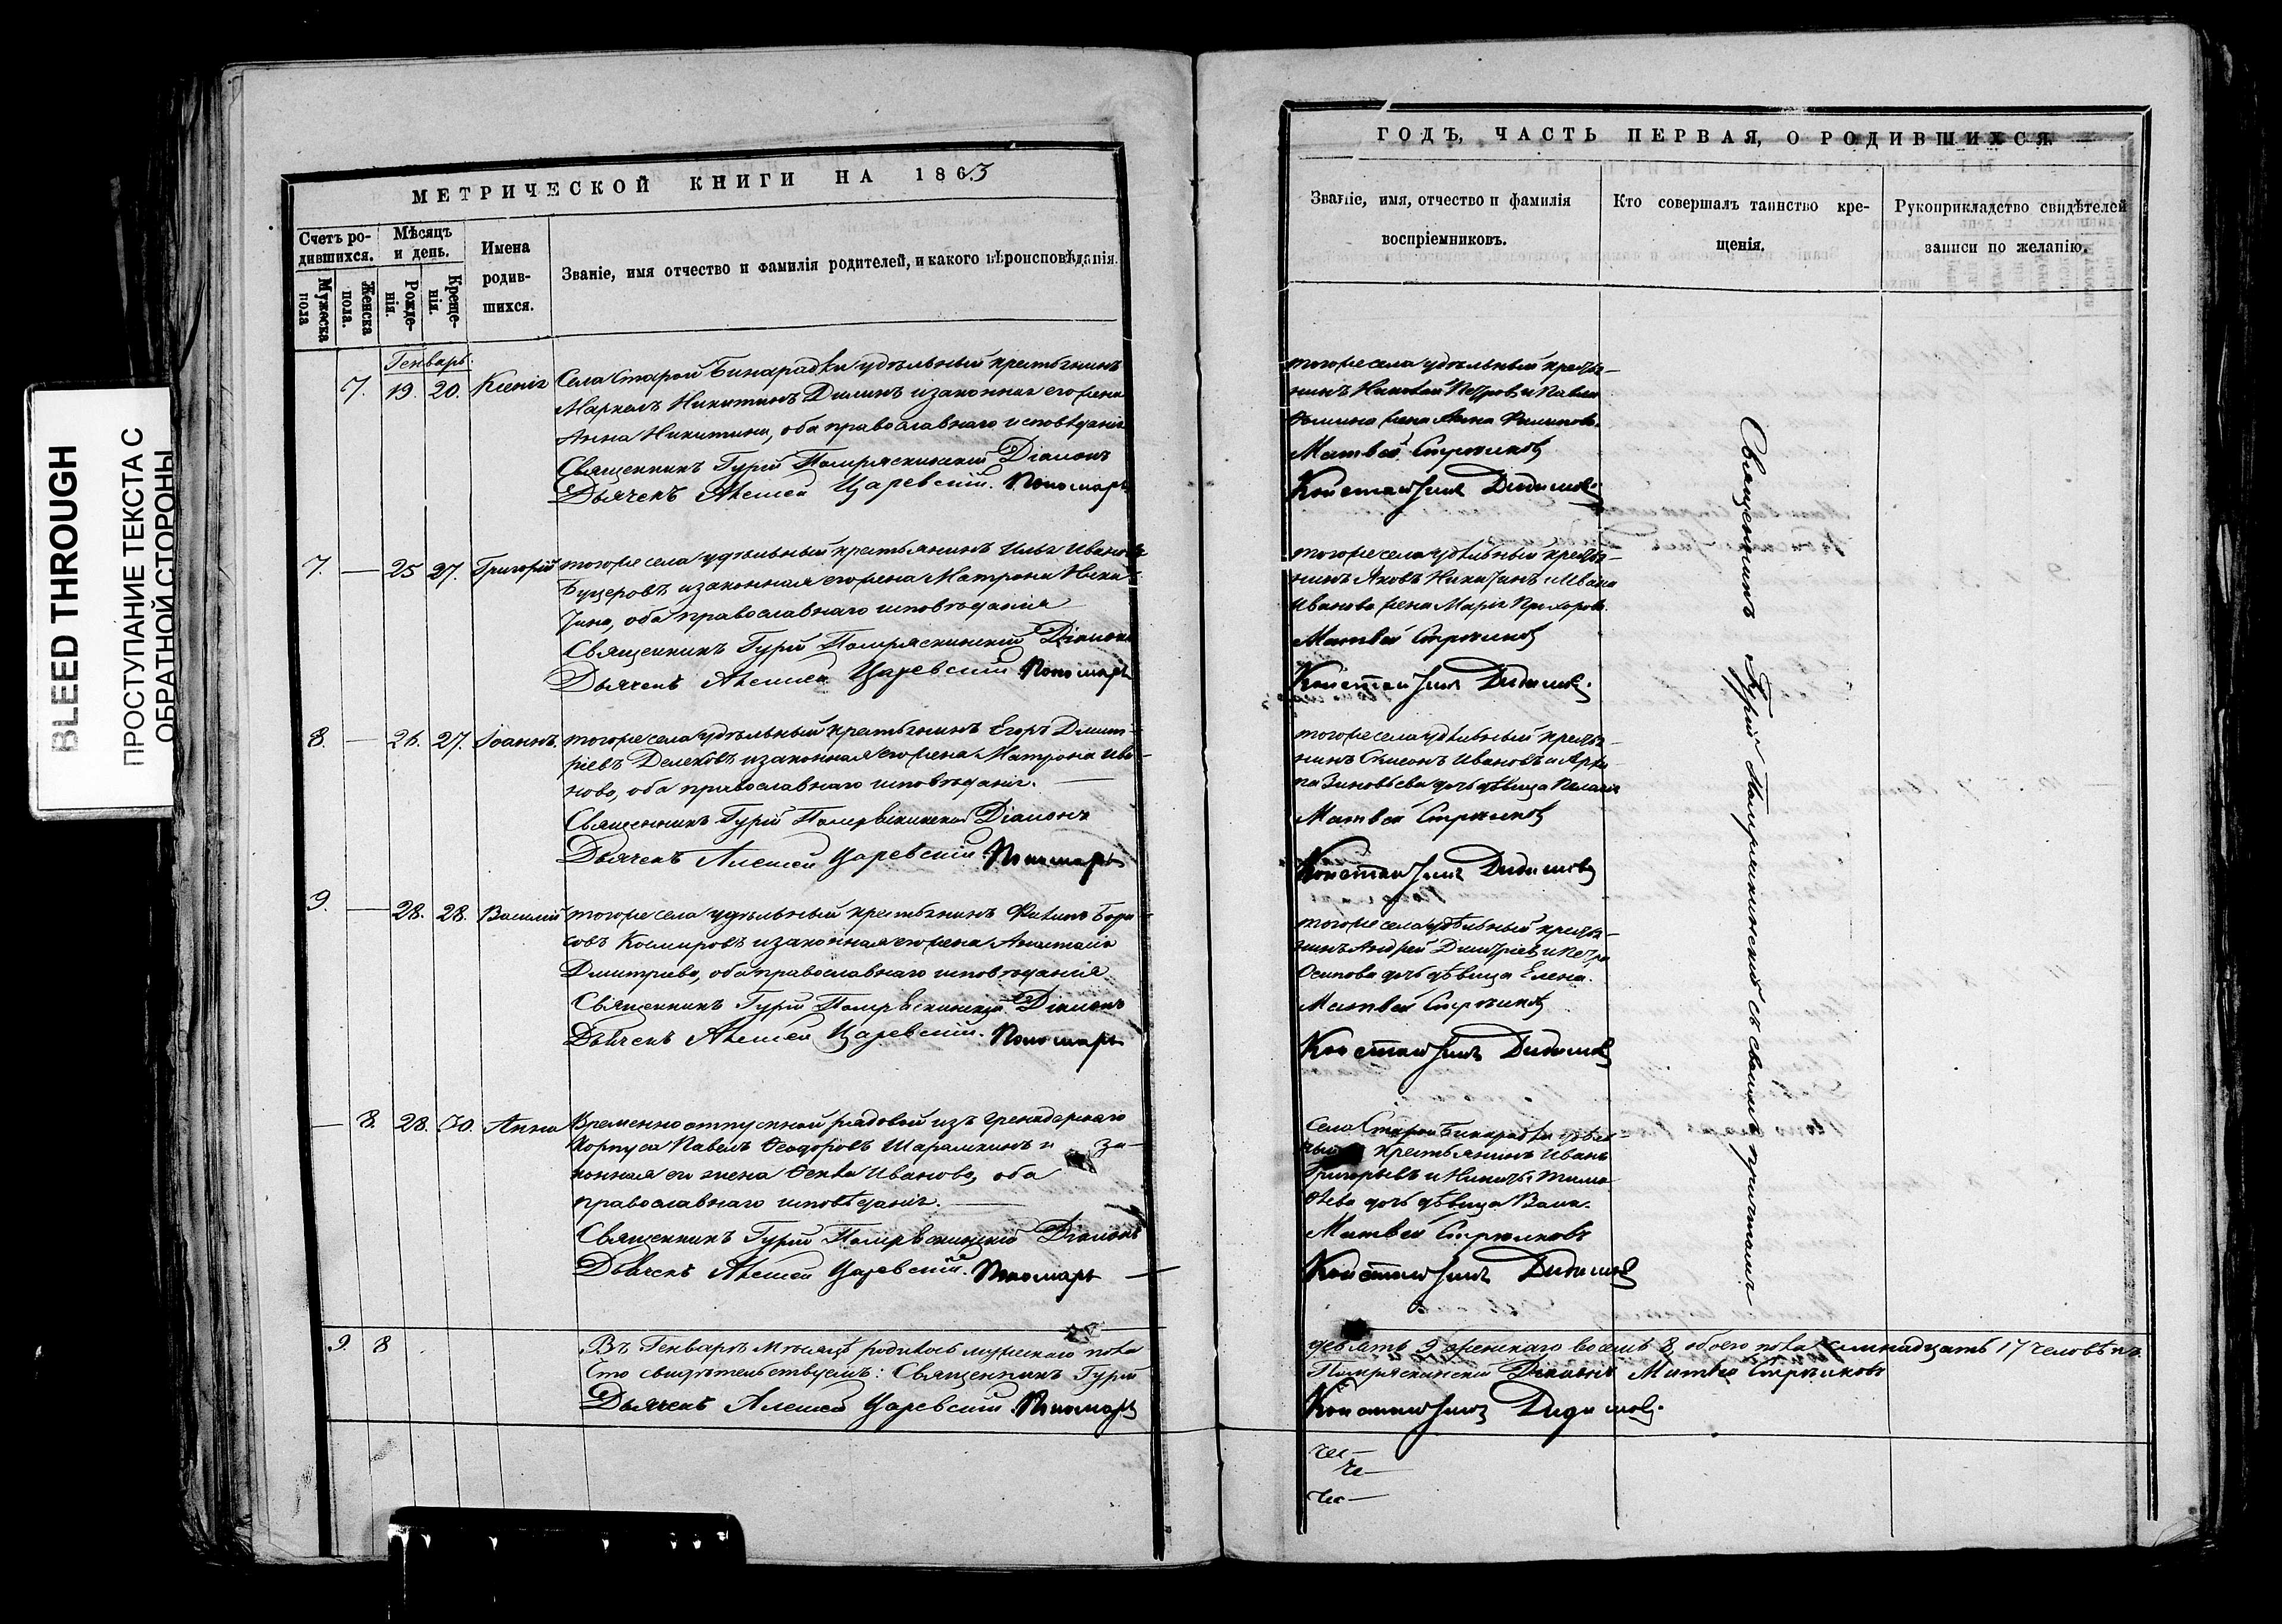 BLEED THROUGH
ПРОСТУПАНИЕ ТЕКСТА С
ОБРАТНОЙ СТОРОНЫ
МЕТРИЧЕСКОЙ КНИГИ НА 1863
Счетъ ро-
дившихся.
Мужеска
пола
Женска
пола.
Мѣсяцъ
и день.
Рожде-
нія.
Креще-
нія.
Имена
родив-
шихся.
Званіе, имя отчество и фамилія родителей, и какого вѣроисповѣданія.
Генварь.
7. 19. 20. Ксенія
Села Старой Бинарадки удѣльный крестьянинъ
Маркелъ Никитинъ Дилинъ и законная его жена
Анна Никитина, оба православнаго исповѣданія
Священникъ Гурій Діаконъ
Дьячекъ Алексей Царевскій. Пономарь
7. — 25 27. Григорій
того же села удѣльный крестьянинъ Илья Ивановъ
и законная его жена Матрона Ники-
тина, оба православнаго исповѣданія
Священникъ Гурій Діаконъ
Дьячекъ Алексей Царевскій Пономарь
8. — 26. 27. Іоаннъ.
того же села удѣльный крестьянинъ Егоръ Димит-
ріевъ и законная его жена Матрона Ива-
нова, оба православнаго исповѣданія. —
Священникъ Гурій Діаконъ
Дьячекъ Алексей Царевскій. Пономарь
9. — 28. 28. Василій
того же села удѣльный крестьянинъ Бори-
совъ и законная его жена Анастасія
Дмитриева, оба православнаго исповѣданія
Священникъ Гурій Діаконъ
Дьячекъ Алексей Царевскій. Пономарь
— 8. 28. 30. Анна
Временно отпускной рядовой изъ Гренадерскаго
Корпуса Павелъ Ѳеодоровъ и за-
конная его жена Ѳекла Иванова, оба
православнаго исповѣданія. —
Священникъ Гурій Діаконъ
Дьячекъ Алексей Царевскій. Пономарь —
9. 8
Въ Генварѣ мѣсяцѣ родилось мужескаго пола
Сто свидѣтельствуемъ: Священникъ Гурій
Дьячекъ Алексей Царевскій. Пономарь
ГОДЪ, ЧАСТЬ ПЕРВАЯ, О РОДИВШИХСЯ
Званіе, имя, отчество и фамилія
воспріемниковъ.
Кто совершалъ таинство кре-
щенія.
Рукоприкладство свидѣтелей
записи по желанію.
того же села удѣльный крестья-
нинъ Николай Петровъ и Павла
жена Анна Филипова.
Матвей Стрелковъ
Константинъ Дидимовъ.
того же села удѣльный крестья-
нинъ Яковъ Никитинъ и Ивана
Иванова жена Марія Прохорова.
Матвей Стрелковъ
Константинъ Дидимовъ.
того же села удѣльный крестья-
нинъ Симеонъ Ивановъ и Архи-
па Зиновьева дочь дѣвица Пелагія
Матвей Стрелковъ
Константинъ Дидимовъ
того же села удѣльный крестья-
нинъ Андрей Димитріевъ и Петра
Осипова дочь дѣвица Елена.
Матвей Стрелковъ
Константинъ Дидимовъ
Села Старой Бинарадки удѣль-
ный крестьянинъ Иванъ
Григорьевъ и Никиты Тимо-
ѳеева дочь дѣвица
Матвей Стрелковъ
Константинъ Дидимовъ
Священникъ Гурій съ своимъ причтомъ
девять 9 женскаго восемь 8, обоего пола семнадцать 17 человѣкъ.
Діаконъ Матвей Стрелковъ
Константинъ Дидимовъ.